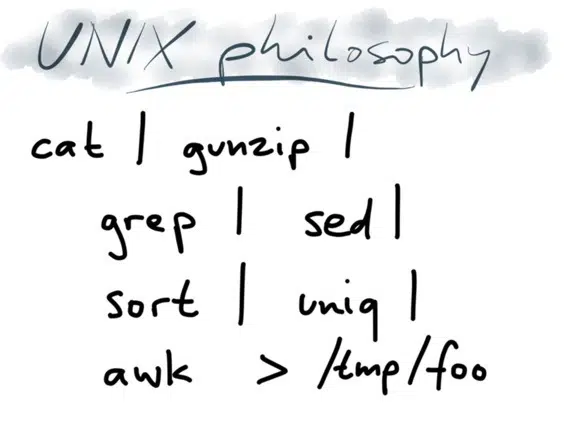 UNIX philosophy
cat | gunzip |
grep | sed |
sort | uniq |
awk > /tmp/foo